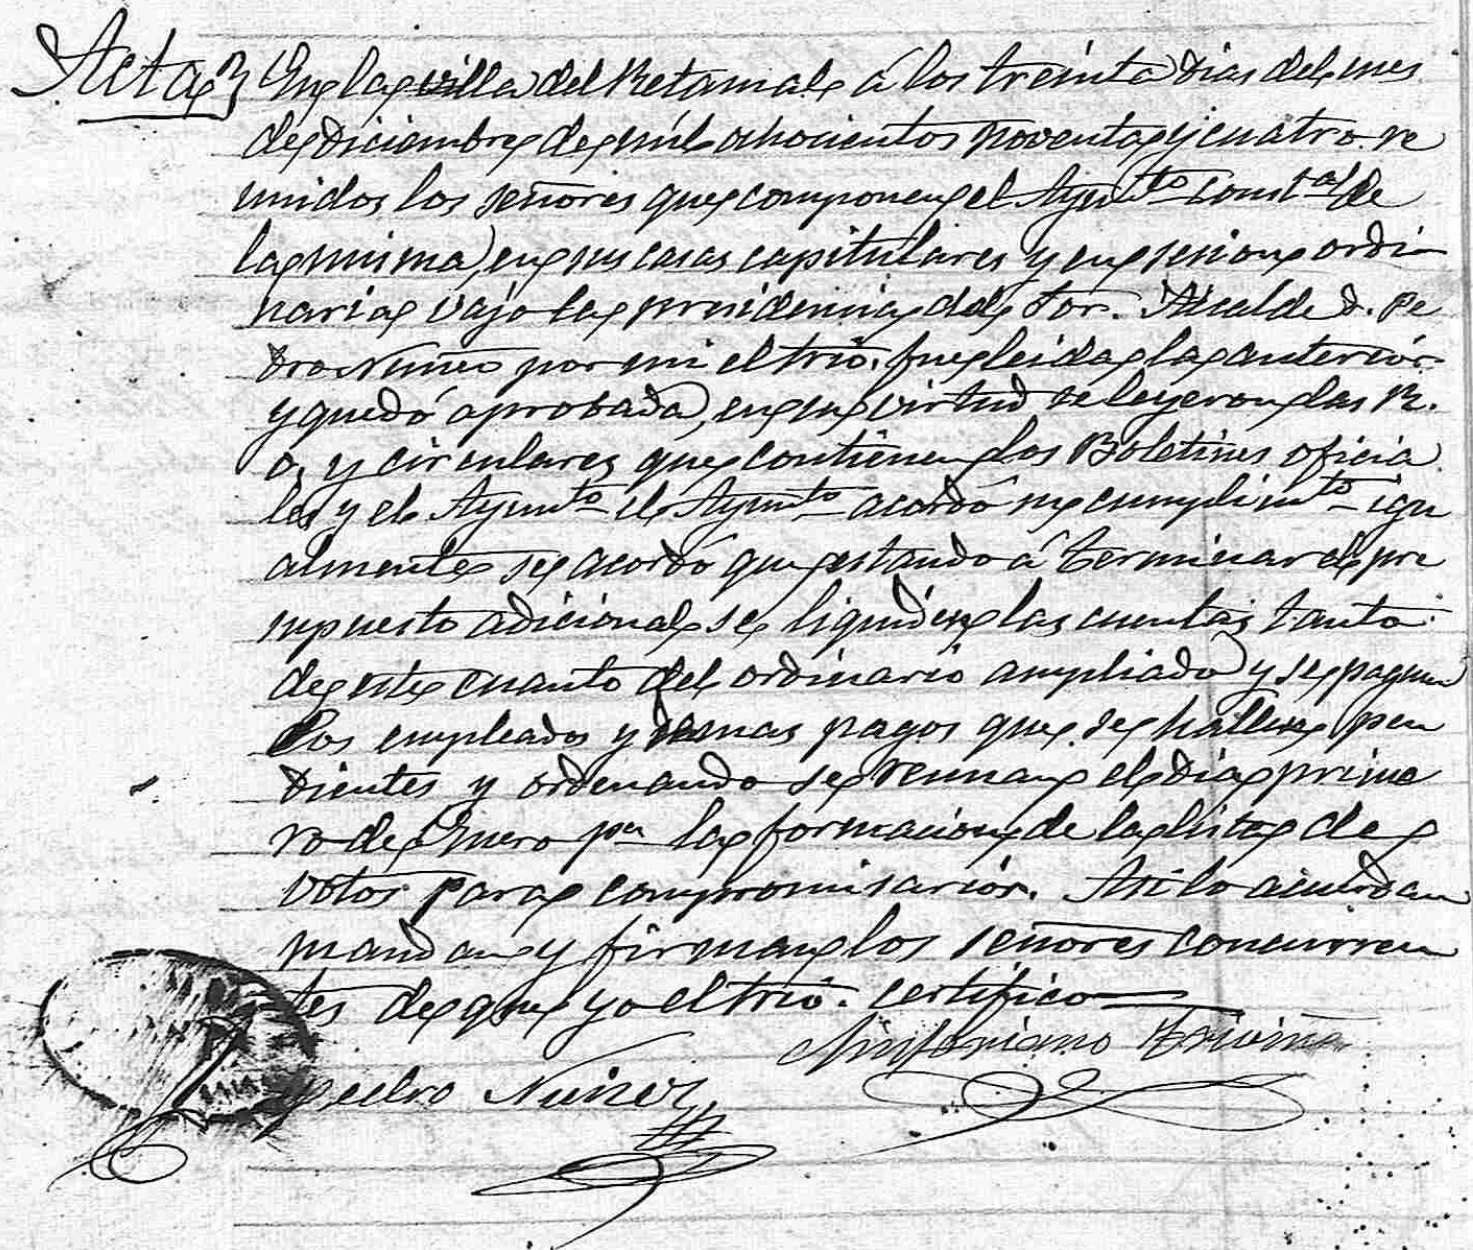 Acta} En la villa del Retamal á los treinta dias del mes
de Diciembre de mil ochocientos noventa y cuatro re
unidos los señores que componen el Ayunto. constal. de
la misma, en sus casas capitulares y en sesion ordi
naria vajo la presidencia del Sor. Alcalde D. Pe
dro Nuñez por mi el srio. fue leida la anterior
y quedó aprobada, en su virtud se leyeron las R.
O. y circulares que contienen los Boletines oficia
les y el Ayunto. el Ayunto. acordó su cumplimto. igu
almente se acordó que estando á terminar el pre
supuesto adicional se liquiden las cuentas tanto
de este cuanto del ordinario ampliado y se paguen
los empleados y demas pagos que se hallen pen
dientes y ordenando se reunan el dia prime
ro de Enero pa. la formacion de la lista de
votos para compromisarios. Asi lo acuerdan
mandan y firman los señores concurren
tes de que yo el srio. certifico
Sinforiano Triviño
Pedro Nuñez